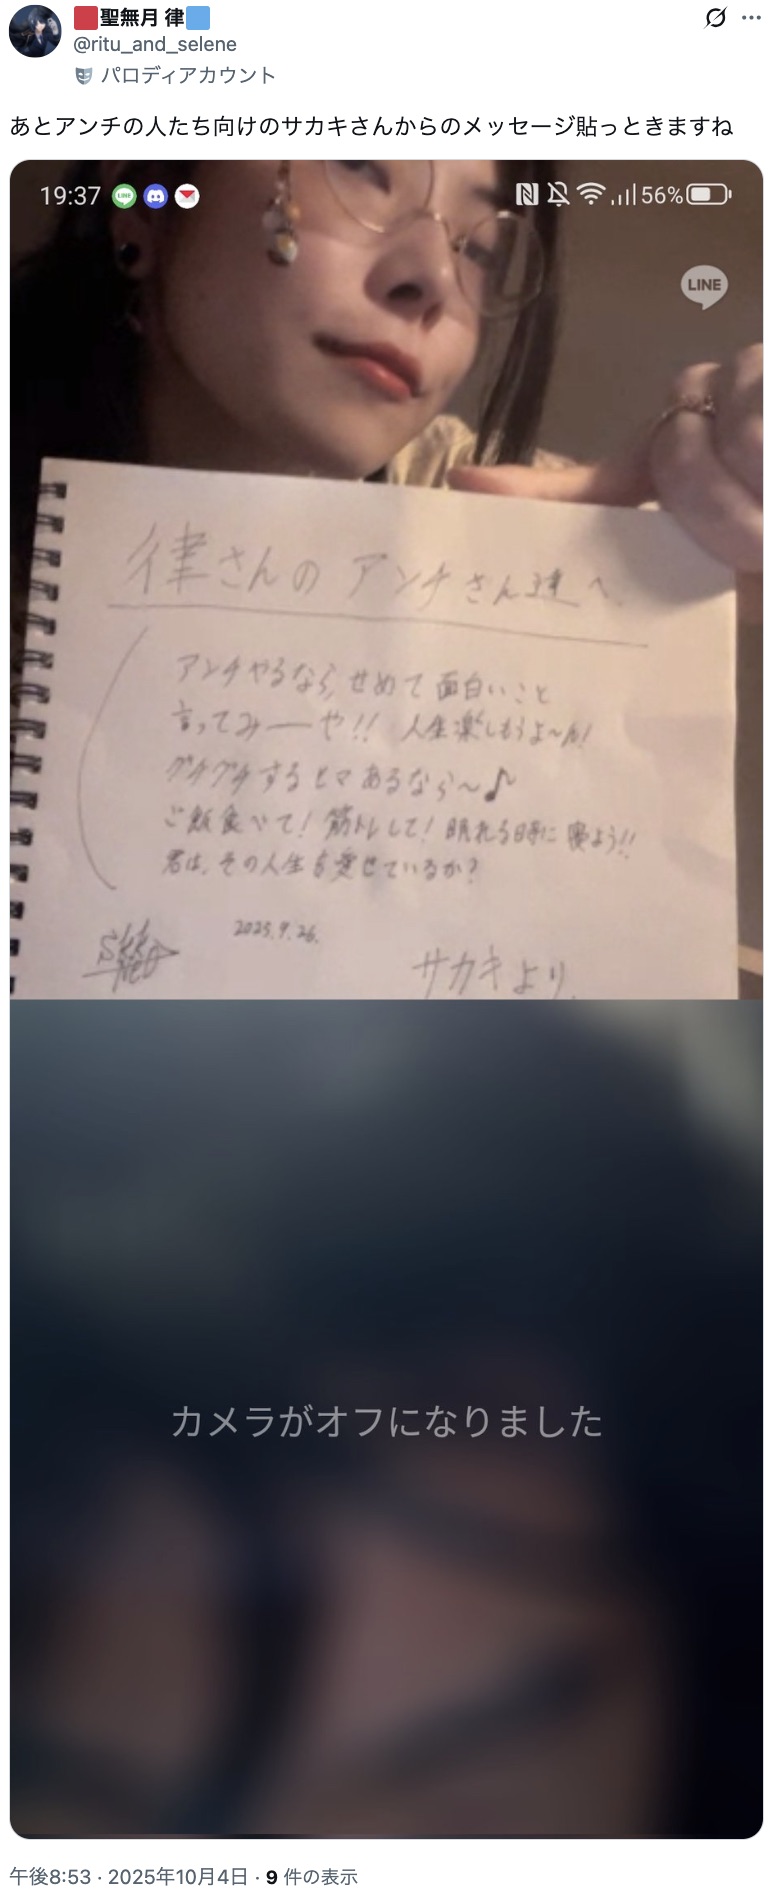 聖無月 律
@ritu_and_selene
パロディアカウント
あとアンチの人たち向けのサカキさんからのメッセージ貼っときますね
19:37
56%
LINE
律さんの アンチさん達へ
アンチやるなら、せめて面白いこと
言ってみーや!! 人生楽しもうよ〜ん!
グチグチするヒマあるなら〜♪
ご飯食べて! 筋トレして! 眠れる時に 寝よう!!
君は、その人生を愛せているか?
2025.9.26.
サカキより.
カメラがオフになりました
午後8:53 · 2025年10月4日 · 9 件の表示